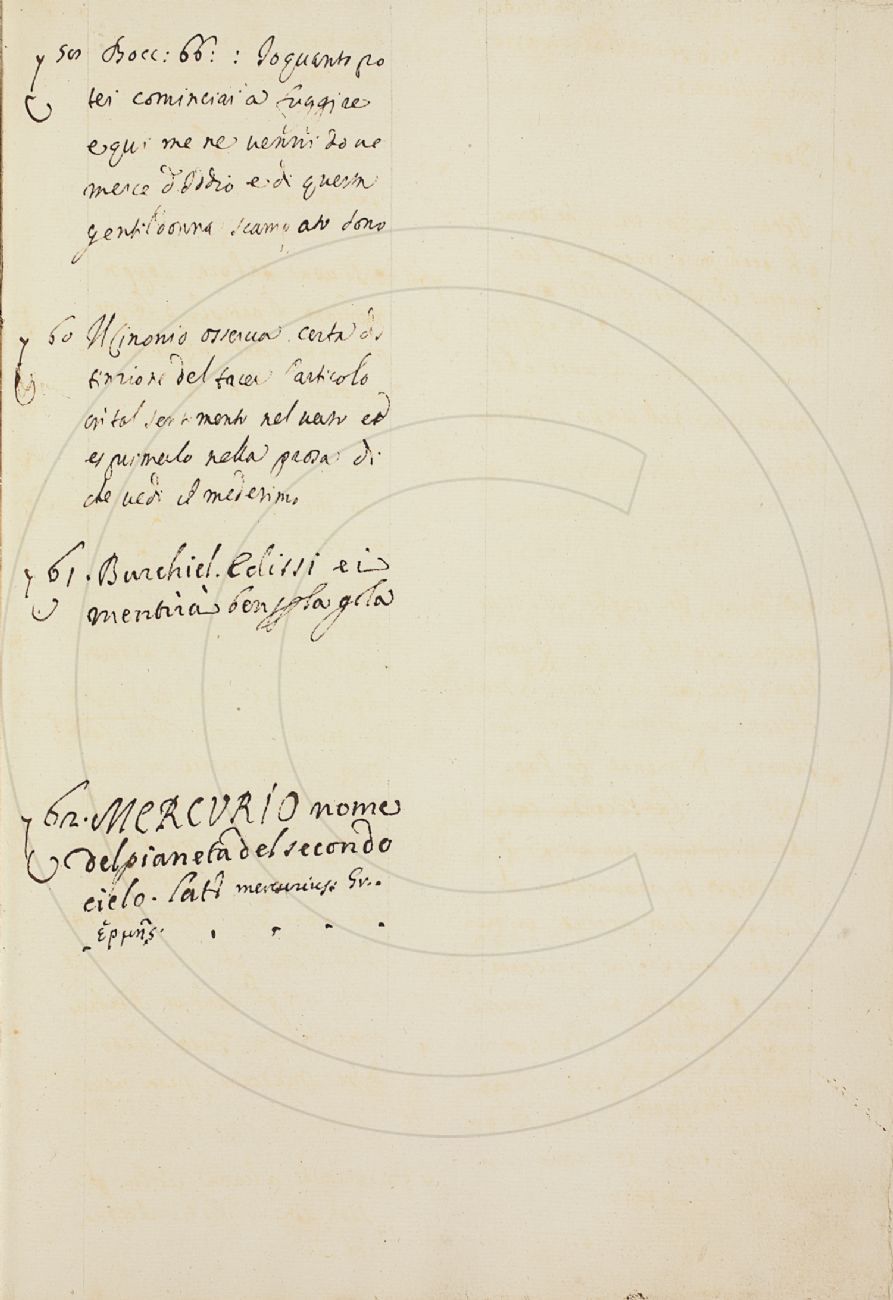 59 Bocc: 66: : Io quanto po
tei cominciai a fuggire
e qui me ne venni dove
merce d'Iddio e di questa
gentildonna scampato sono
60 Il Cinonio osserva certa dis
tinzione del tacer l'articolo
in tal sentimento nel verso ed
esprimerlo nella prosa di
che vedi il medesimo
61. Burchiel. E dissi ei
mentirà ben p la gola
62. MERCVRIO nome
del pianeta del secondo
cielo. Lat. mercurius Gr..
ἑρμῆς.